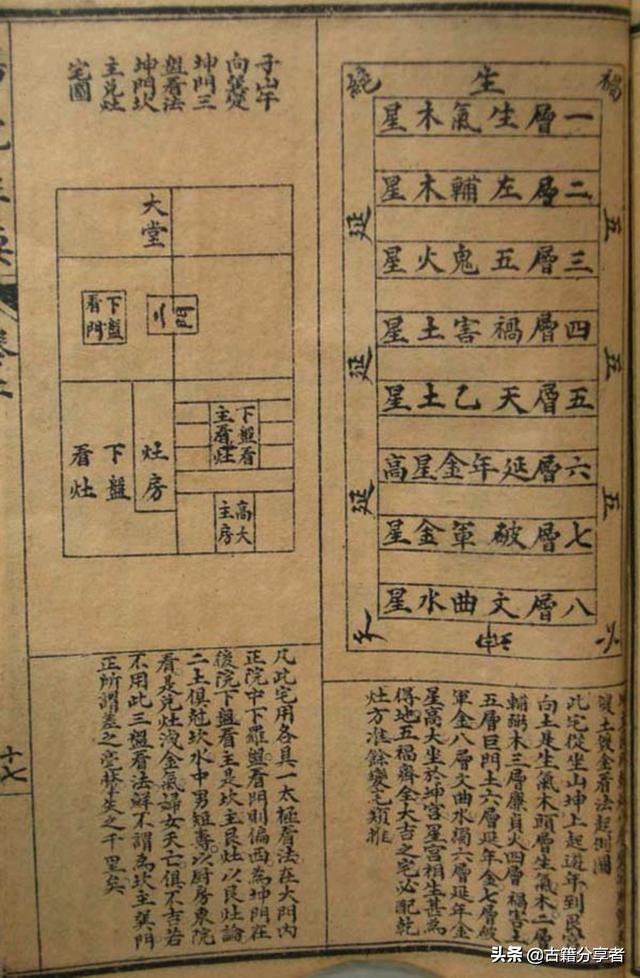 禍
生
絶
一層生氣木星
二層左輔木星
三層五鬼火星
四層禍害土星
五層天乙土星
六層延年金星高
七層破軍金星
八層文曲水星
五
五
五
延
延
延
六
天
煖土發金看法起例圖
此宅從坐山坤上起遊年到
向上是生氣木頭層生氣木二層
輔弼木三層廉貞火四層禍害土
五層巨門土六層延年金七層破
軍金八層文曲水獨六層延年金
星高大坐於坤宮星宮相生甚為
得地五福齊全大吉之宅必配乾
灶方准餘變宅類推
子山午
向巽變
坤門三
盤看法
坤門坎
主兌灶
宅圖
大堂
門
下盤
看門
灶房
下盤
看灶
下盤看
主看灶
高大
主房
凡此宅用各具一太極看法在大門內
正院中下羅盤看門則偏西為坤門在
後院下盤看主是坎主艮灶以艮灶論
二土俱尅坎水中男短壽以厨房東院
看是兌灶洩金氣婦女夭亡俱不吉若
不用此三盤看法鮮不謂為坎主巽門
正所謂差之毫釐失之千里矣
十七
頭条 @古籍分享者